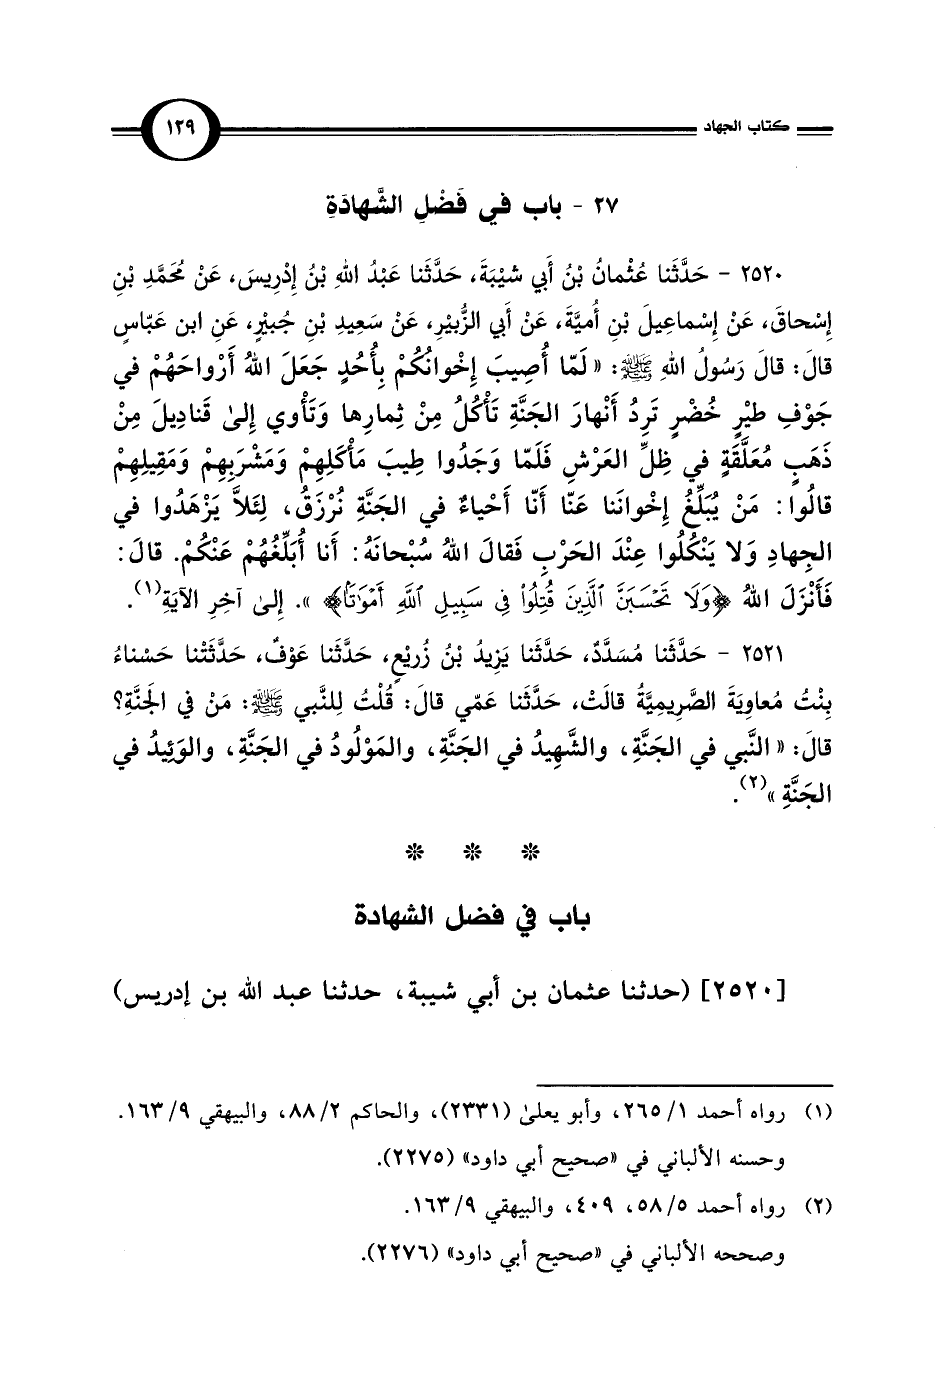 كتاب الجهاد ١٢٩
٢٧ - باب في فَضْلِ الشَّهادَةِ
٢٥٢٠ - حَدَّثَنا عُثْمانُ بْنُ أَبي شَيْبَةَ، حَدَّثَنا عَبْدُ اللهِ بْنُ إِدْرِيسَ، عَنْ مُحَمَّدِ بْنِ
إِسْحاقَ، عَنْ إِسْماعِيلَ بْنِ أُمَيَّةَ، عَنْ أَبي الزُّبَيْرِ، عَنْ سَعِيدِ بْنِ جُبَيْرٍ، عَنِ ابن عَبّاسٍ
قالَ: قالَ رَسُولُ اللهِ ﷺ: « لَمّا أُصِيبَ إِخْوانُكُمْ بِأُحُدٍ جَعَلَ اللهُ أَرْواحَهُمْ في
جَوْفِ طَيْرٍ خُضْرٍ تَرِدُ أَنْهارَ الجَنَّةِ تَأْكُلُ مِنْ ثِمارِها وَتَأْوي إِلىٰ قَنادِيلَ مِنْ
ذَهَبٍ مُعَلَّقَةٍ في ظِلِّ العَرْشِ فَلَمّا وَجَدُوا طِيبَ مَأْكَلِهِمْ وَمَشْرَبِهِمْ وَمَقِيلِهِمْ
قالُوا: مَنْ يُبَلِّغُ إِخْوانَنا عَنّا أَنّا أَحْياءٌ في الجَنَّةِ نُرْزَقُ، لِئَلاَّ يَزْهَدُوا في
الجِهادِ وَلا يَنْكُلُوا عِنْدَ الحَرْبِ فَقالَ اللهُ سُبْحانَهُ: أَنا أُبَلِّغُهُمْ عَنْكُمْ. قالَ:
فَأَنْزَلَ اللهُ ﴿وَلَا تَحْسَبَنَّ ٱلَّذِينَ قُتِلُواْ فِي سَبِيلِ ٱللَّهِ أَمْوَٰتًا﴾ ». إِلىٰ آخِرِ الآيَةِ(١).
٢٥٢١ - حَدَّثَنا مُسَدَّدٌ، حَدَّثَنا يَزِيدُ بْنُ زُرَيْعٍ، حَدَّثَنا عَوْفٌ، حَدَّثَتْنا حَسْناءُ
بِنْتُ مُعاوِيَةَ الصَّرِيمِيَّةُ قالَتْ، حَدَّثَنا عَمّي قالَ: قُلْتُ لِلنَّبي ﷺ: مَنْ في الجَنَّةِ؟
قالَ: « النَّبي في الجَنَّةِ، والشَّهِيدُ في الجَنَّةِ، والمَوْلُودُ في الجَنَّةِ، والوَئِيدُ في
الجَنَّةِ »(٢).
* * *
باب في فضل الشهادة
[٢٥٢٠] (حدثنا عثمان بن أبي شيبة، حدثنا عبد الله بن إدريس)
(١) رواه أحمد ١/ ٢٦٥، وأبو يعلىٰ (٢٣٣١)، والحاكم ٢/ ٨٨، والبيهقي ٩/ ١٦٣.
وحسنه الألباني في «صحيح أبي داود» (٢٢٧٥).
(٢) رواه أحمد ٥/ ٥٨، ٤٠٩، والبيهقي ٩/ ١٦٣.
وصححه الألباني في «صحيح أبي داود» (٢٢٧٦).